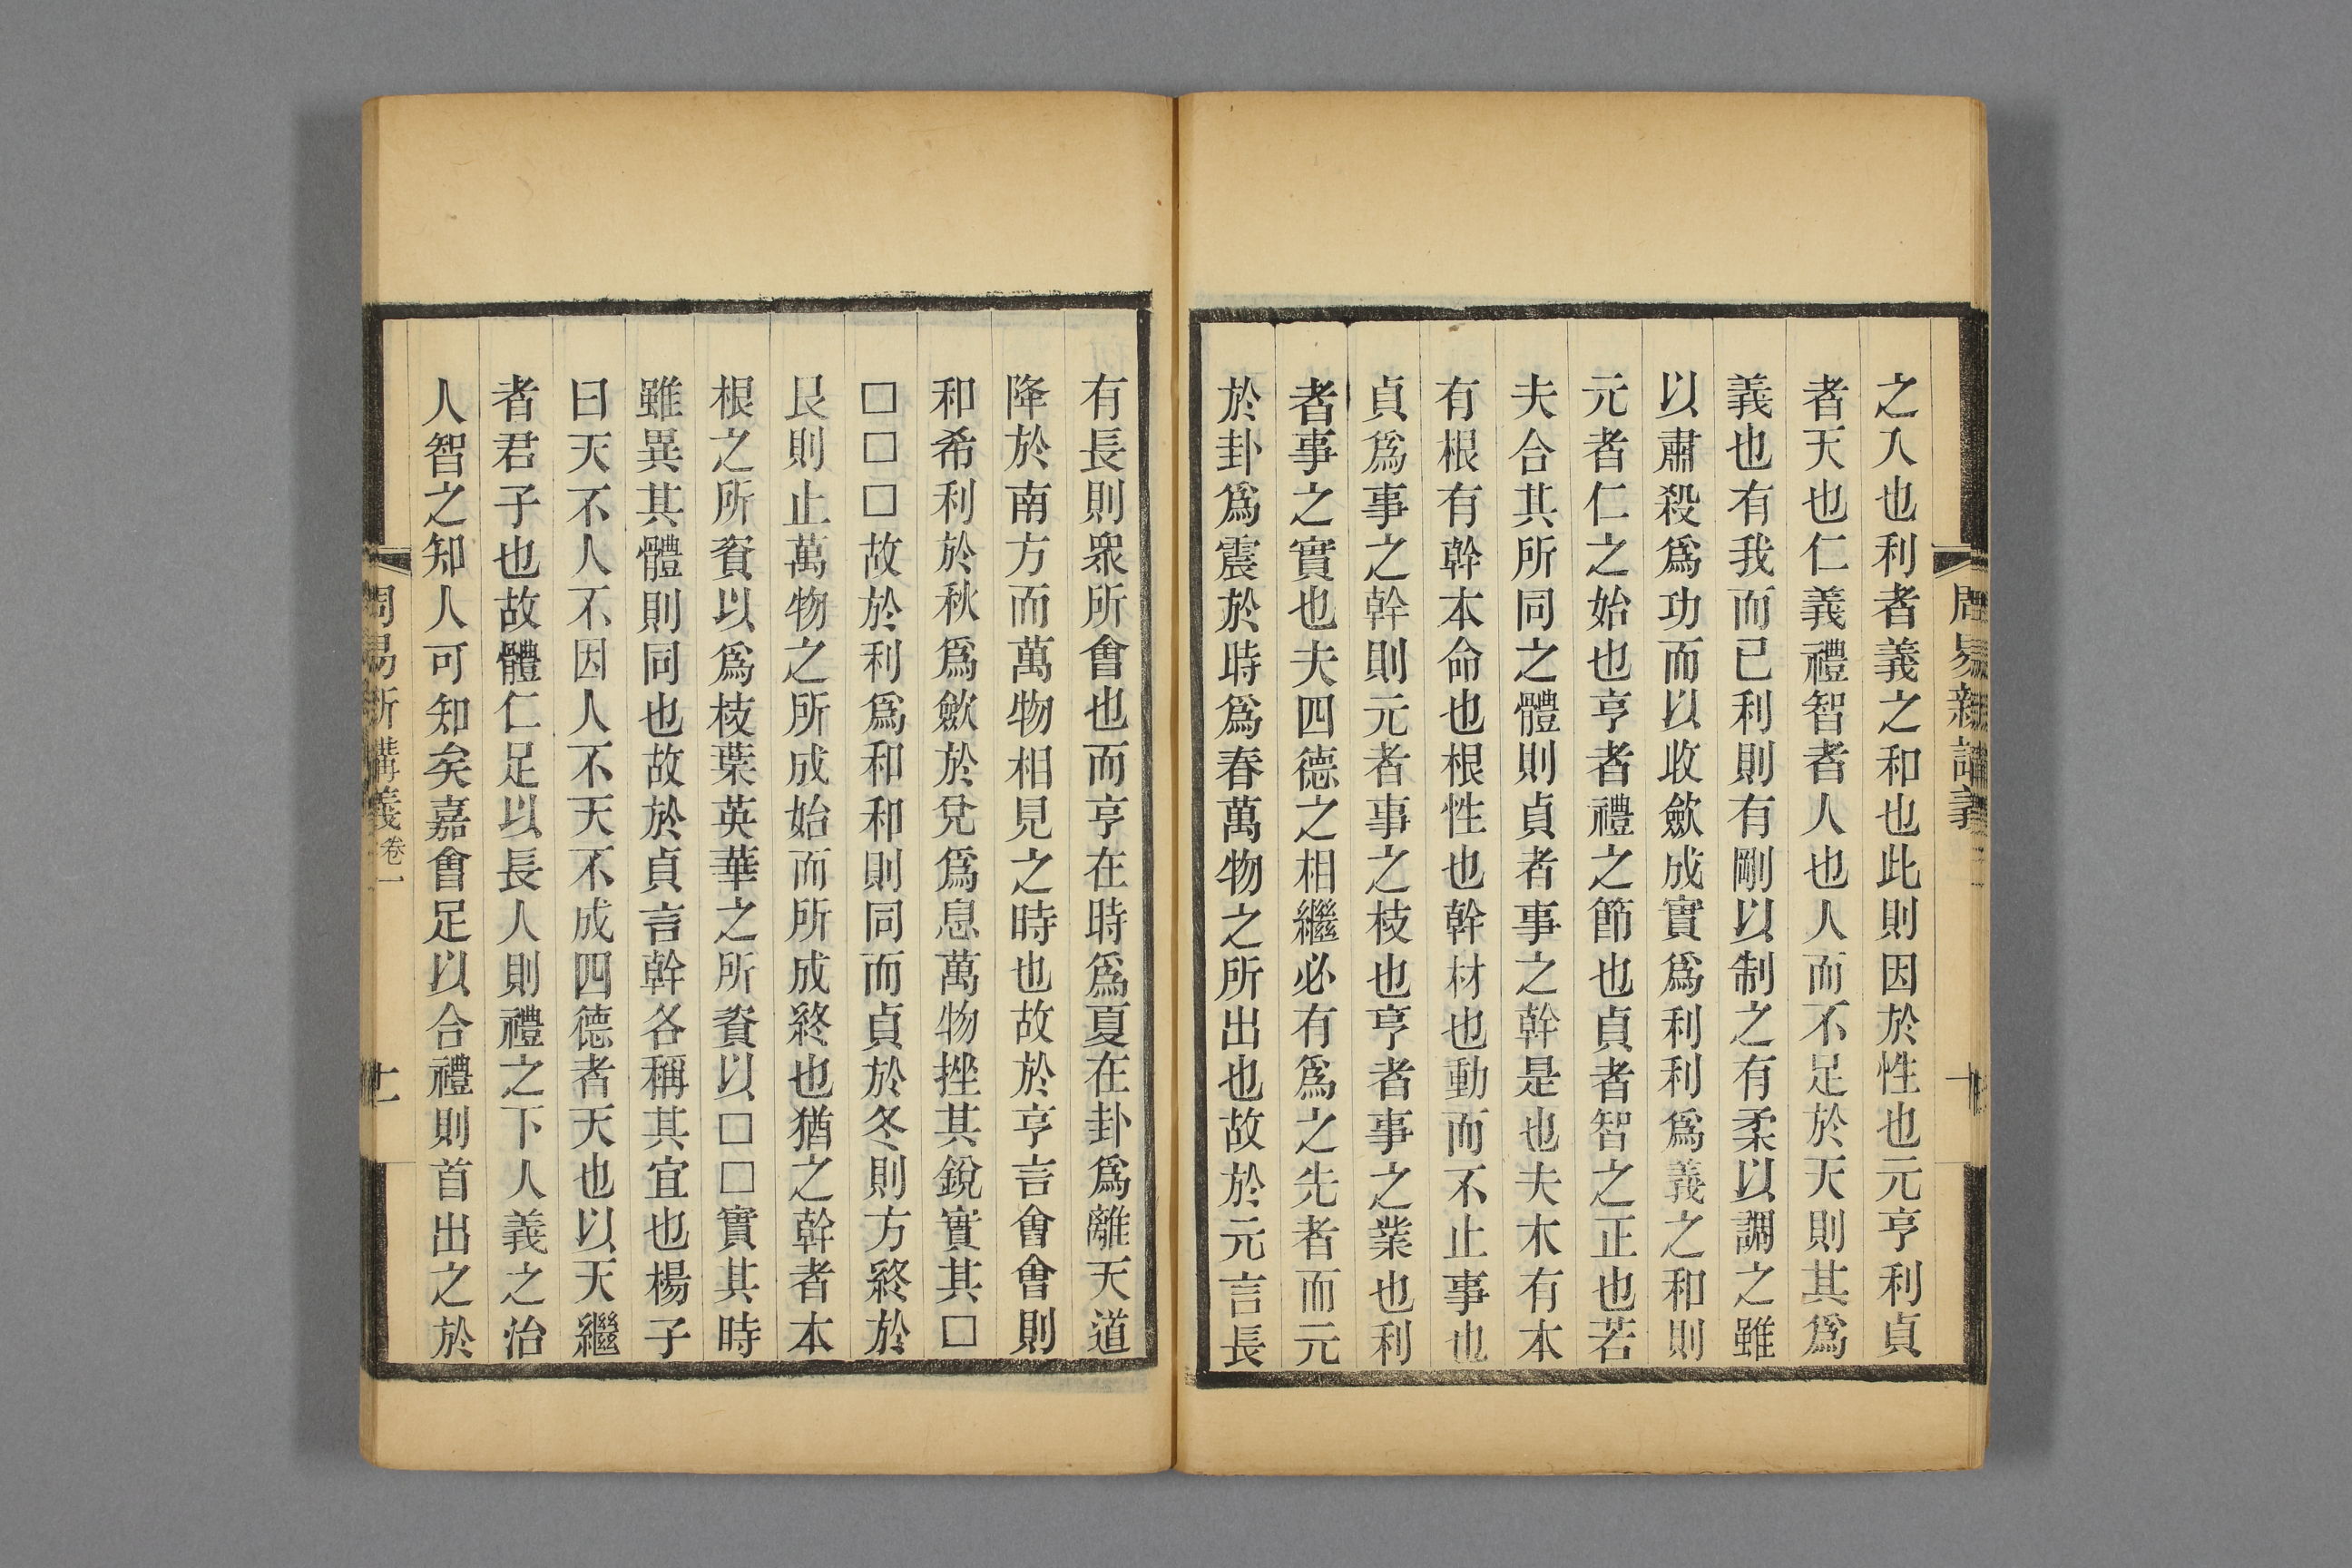 之入也利者義之和也此則因於性也元亨利貞
者天也仁義禮智者人也人而不足於天則其爲
義也有我而已利則有剛以制之有柔以調之雖
以肅殺爲功而以收歛成實爲利利爲義之和則
元者仁之始也亨者禮之節也貞者智之正也若
夫合其所同之體則貞者事之幹是也夫木有本
有根有幹本命也根性也幹材也動而不止事也
貞爲事之幹則元者事之枝也亨者事之業也利
者事之實也夫四德之相繼必有爲之先者而元
於卦爲震於時爲春萬物之所出也故於元言長
有長則眾所會也而亨在時爲夏在卦爲離天道
降於南方而萬物相見之時也故於亨言會會則
和希利於秋爲歛於兌爲息萬物挫其銳實其□
□□□故於利爲和和則同而貞於冬則方終於
艮則止萬物之所成始而所成終也猶之幹者本
根之所資以爲枝葉英華之所資以□□實其時
雖異其體則同也故於貞言幹各稱其宜也楊子
曰天不人不因人不天不成四德者天也以天繼
者君子也故體仁足以長人則禮之下人義之治
人智之知人可知矣嘉會足以合禮則首出之於
周易新講義卷一